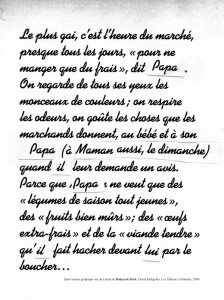 Le plus gai, c'est l'heure du marché,
presque tous les jours, « pour ne
manger que du frais », dit Papa.
On regarde de tous ses yeux les
monceaux de couleurs ; on respire
les odeurs, on goûte les choses que les
marchands donnent, au bébé et à son
Papa (à Maman aussi, le dimanche)
quand il leur demande un avis.
Parce que Papa ne veut que des
« légumes de saison tout jeunes »,
des « fruits bien mûrs » ; des « œufs
extra-frais » et de la « viande tendre »
qu'il fait hacher devant lui par le
boucher...